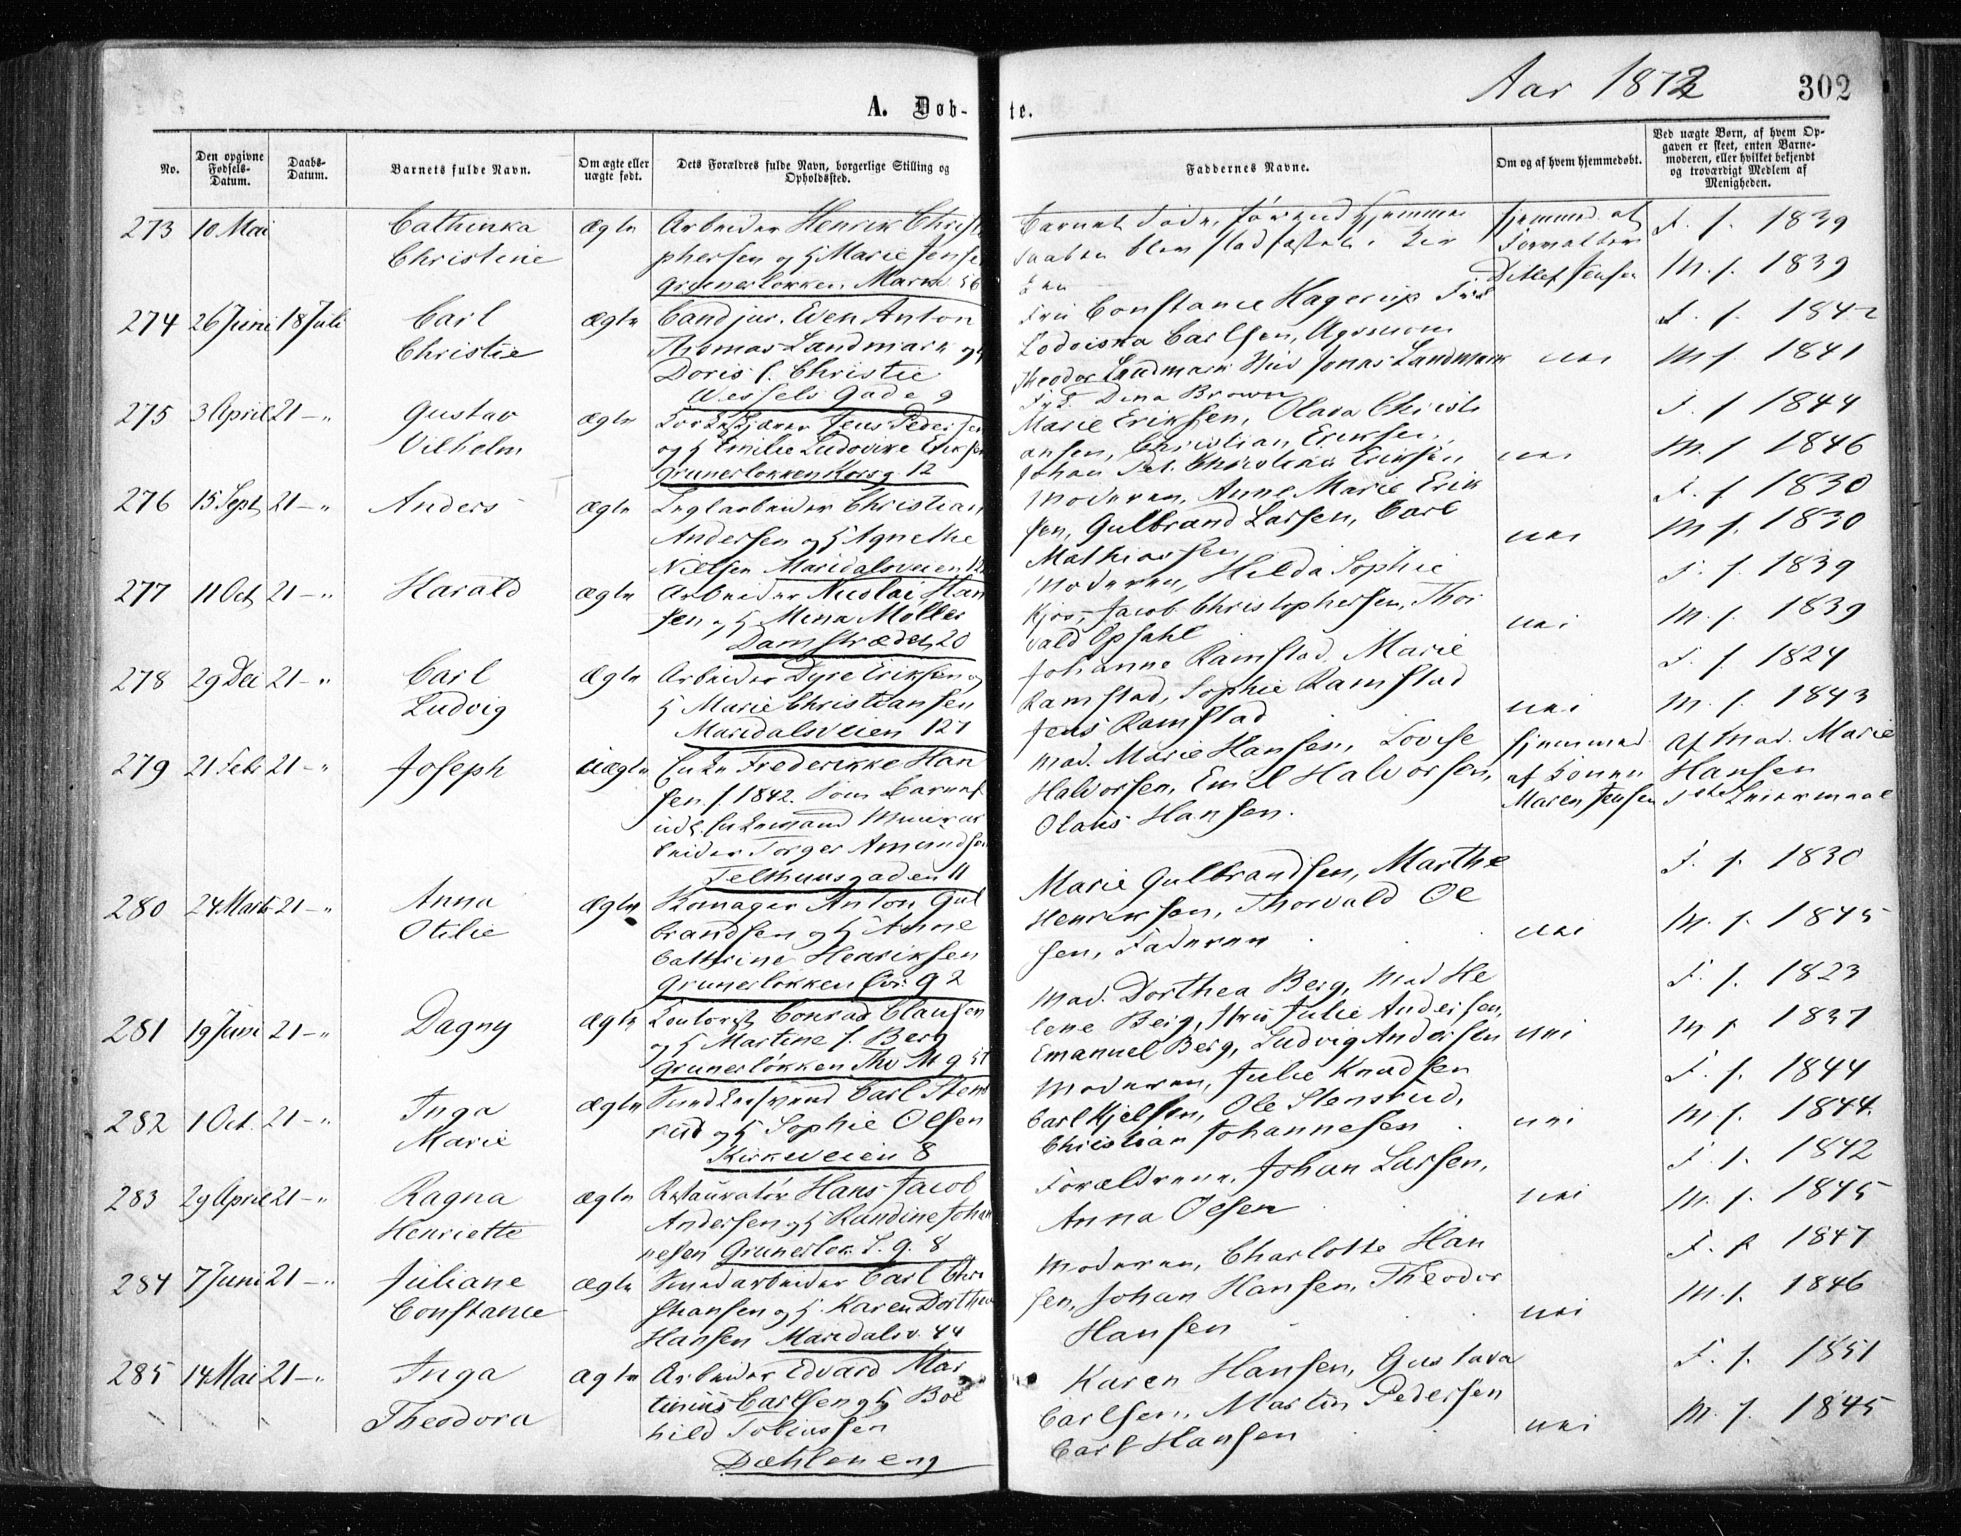 Aar 1872
302
A. Døb-
te.
No.
Den opgivne Fødsels-Datum.
Daabs-Datum.
Barnets fulde Navn.
Om ægte eller uægte født.
Dets Forældres fulde Navn, borgerlige Stilling og Opholdssted.
Faddernes Navne.
Om og af hvem hjemmedøbt.
Ved uægte Børn, af hvem Op-
gaven er skeet, enten Barne-
moderen, eller hvilket bekjendt
og troværdigt Medlem af
Menigheden.
273 10 Mai Cathinka Christine ægte
Arbeider Henrik Christo
phersen og H Marie Jense
Grunerløkken Markv 56
hjemmed. af
Ditlef Jensen
F. f. 1839
M. f. 1839
274 26 Juni 18 Juli Carl Christie ægte
Cand jur. Even Anton
Thomas Landmark og H
Doris C. Christie
Wessels Gade 9
Fru Constance Hagerup
Lodviska Carlsen,
Theodor Landmark Jonas Landmark
Dina Brown
nei
F. f. 1842
M. f. 1841
275 3 April 21 — " Gustav Vilhelm ægte
Jens Pedersen
og H Emilie Ludovike Eriksen
Grunerløkken Korsg 12
Marie Eriksen, Olava Christi
ansen, Christian Eriksen,
Johan Pet. Christian Eriksen
nei
F. f. 1844
M. f. 1846
276 15 Sept 21 — " Anders ægte
Teglarbeider Christian
Andersen og H Agnethe
Nielsen Maridalsveien
Moderen, Anne Marie Erik
sen, Gulbrand Larsen, Carl
Mathiassen
nei
F. f. 1830
M. f. 1830
277 11 Oct 21 — " Harald ægte
Arbeider Nicolai Han
sen og H Mina Møller
Damstrædet 20
Moderen, Hilda Sophie
Kjos, Jacob Christophersen, Thor
vald Opsahl
nei
F. f. 1839
M. f. 1839
278 29 Dec 21 — " Carl Ludvig ægte
Arbeider Dyre Eriksen og
H Marie Christiansen
Maridalsveien 127
Johanne Ramstad, Marie
Ramstad, Sophie Ramstad
Jens Ramstad
nei
F. f. 1824
M. f. 1843
279 21 Febr 21 — " Joseph uægte
Enke Frederikke Han
sen f. 1842. Som Barnef
udl. Enkemand Murar
beider Torger Amundsen
Telthuusgaden 11
Mad. Marie Hansen, Lovise
Halvorsen, Emil Halvorsen,
Olaus Hansen.
hjemmed
af Konen
Maren Jensen
af Mad. Marie
Hansen
1ste Leiermaal
F. f. 1830
280 24 Marts 21 — " Anna Otilie ægte
Anton Gul
brandsen og H Anne
Cathrine Henriksen
Grunerløkken
Marie Gulbrandsen, Marthe
Henriksen, Thorvald Ol
sen, Faderen
nei
M. f. 1845
281 19 Juni 21 — " Dagny ægte
Kontorist Conrad Clausen
og H Martine f. Berg
Grunerløkken Thv M g 51
Mad. Dorthea Berg, Mad He
lene Berg, Julie Andersen,
Emanuel Berg, Ludvig Andersen
nei
F. f. 1823
M f 1837
282 1 Oct. 21 — " Inga Marie ægte
Smedesvend Carl Stens
rud og H Sophie Olsen
Kirkeveien 8
Moderen, Julie Knudsen
Carl Kjelsen, Ole Stensrud,
Christian Johannesen
nei
F. f. 1844
M. f. 1844.
283 29 April 21 — " Ragna Henriette ægte
Restauratør Hans Jacob
Andersen og H Randine Johan
nesen Grunerløk T. g. 8
Forældrene, Johan Larsen,
Anna Olsen
nei
F. f. 1842
M. f. 1845
284 7 Juni 21 — " Juliane Constance ægte
Smedarbeider Carl Chri
stiansen og H. Karen Dorthea
Hansen Maridalsv. 44
Moderen, Charlotte Han
sen, Johan Hansen, Theodor
Hansen
nei
F. f 1847
M. f. 1846
285 14 Mai 21 — " Inga Theodora ægte
Arbeider Edvard Mar
tinius Carlsen og H Bol
hild Tobiassen
Dæhleneng
Karen Hansen, Gustava
Carlsen, Martin Pedersen
Carl Hansen
nei
F. f. 1851
M. f. 1845